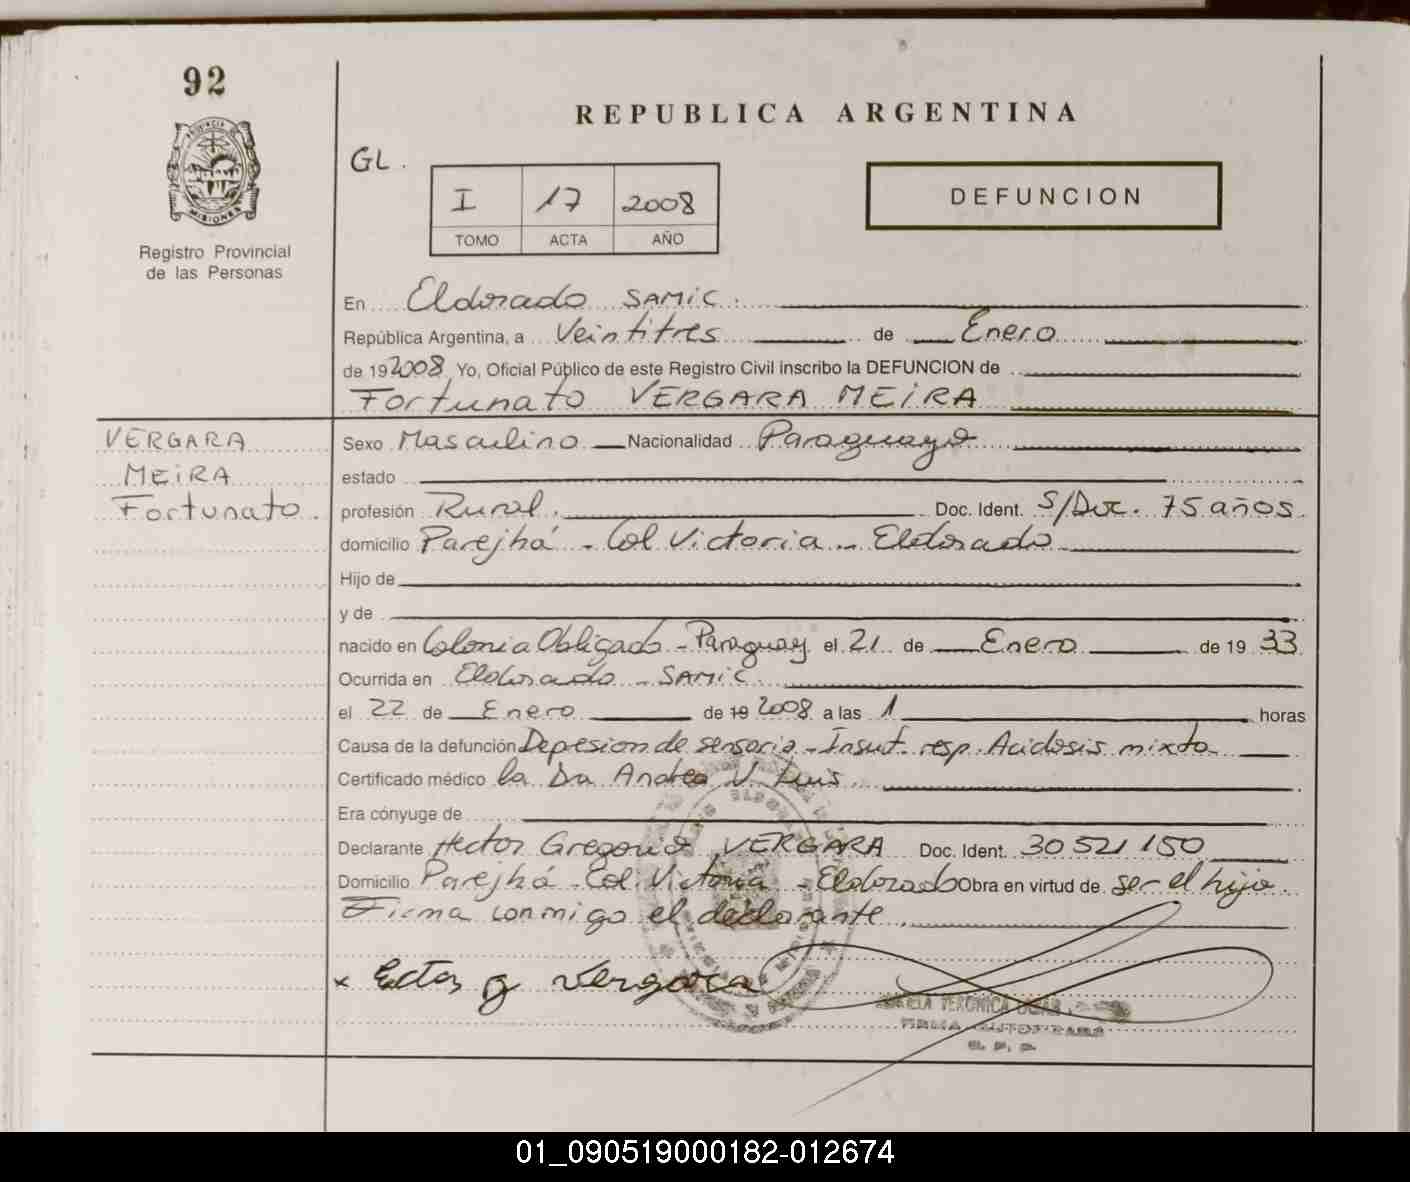 92
REPUBLICA ARGENTINA
PROVINCIA DE
MISIONES
Registro Provincial
de las Personas
GL.
I 17 2008
TOMO ACTA AÑO
DEFUNCION
En Eldorado SAMIC.
República Argentina, a Veintitres de Enero
de 192008 Yo, Oficial Público de este Registro Civil inscribo la DEFUNCION de
Fortunato VERGARA MEIRA
VERGARA
MEIRA
Fortunato.
Sexo Masculino Nacionalidad Paraguayo
estado
profesión Rural. Doc. Ident. S/Doc. 75 años.
domicilio Parejhá - Col Victoria - Eldorado
Hijo de
y de
nacido en Colonia Obligado - Paraguay el 21 de Enero de 19 33
Ocurrida en Eldorado - SAMIC.
el 22 de Enero de 19 2008 a las 1 horas
Causa de la defunción Depresion de sensorio - Insuf. resp. Acidosis mixta
Certificado médico la Dra Andrea V. Luis
Era cónyuge de
Declarante Hector Gregorio VERGARA Doc. Ident. 30521150
Domicilio Parejhá - Col. Victoria - Eldorado Obra en virtud de ser el hijo.
Firma conmigo el declarante.
x Ector g vergara
VERONICA
FIRMA AUTORIZADA
R. P. P.
01_090519000182-012674